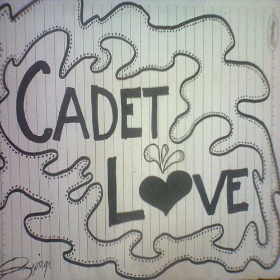 CADET
L♥VE